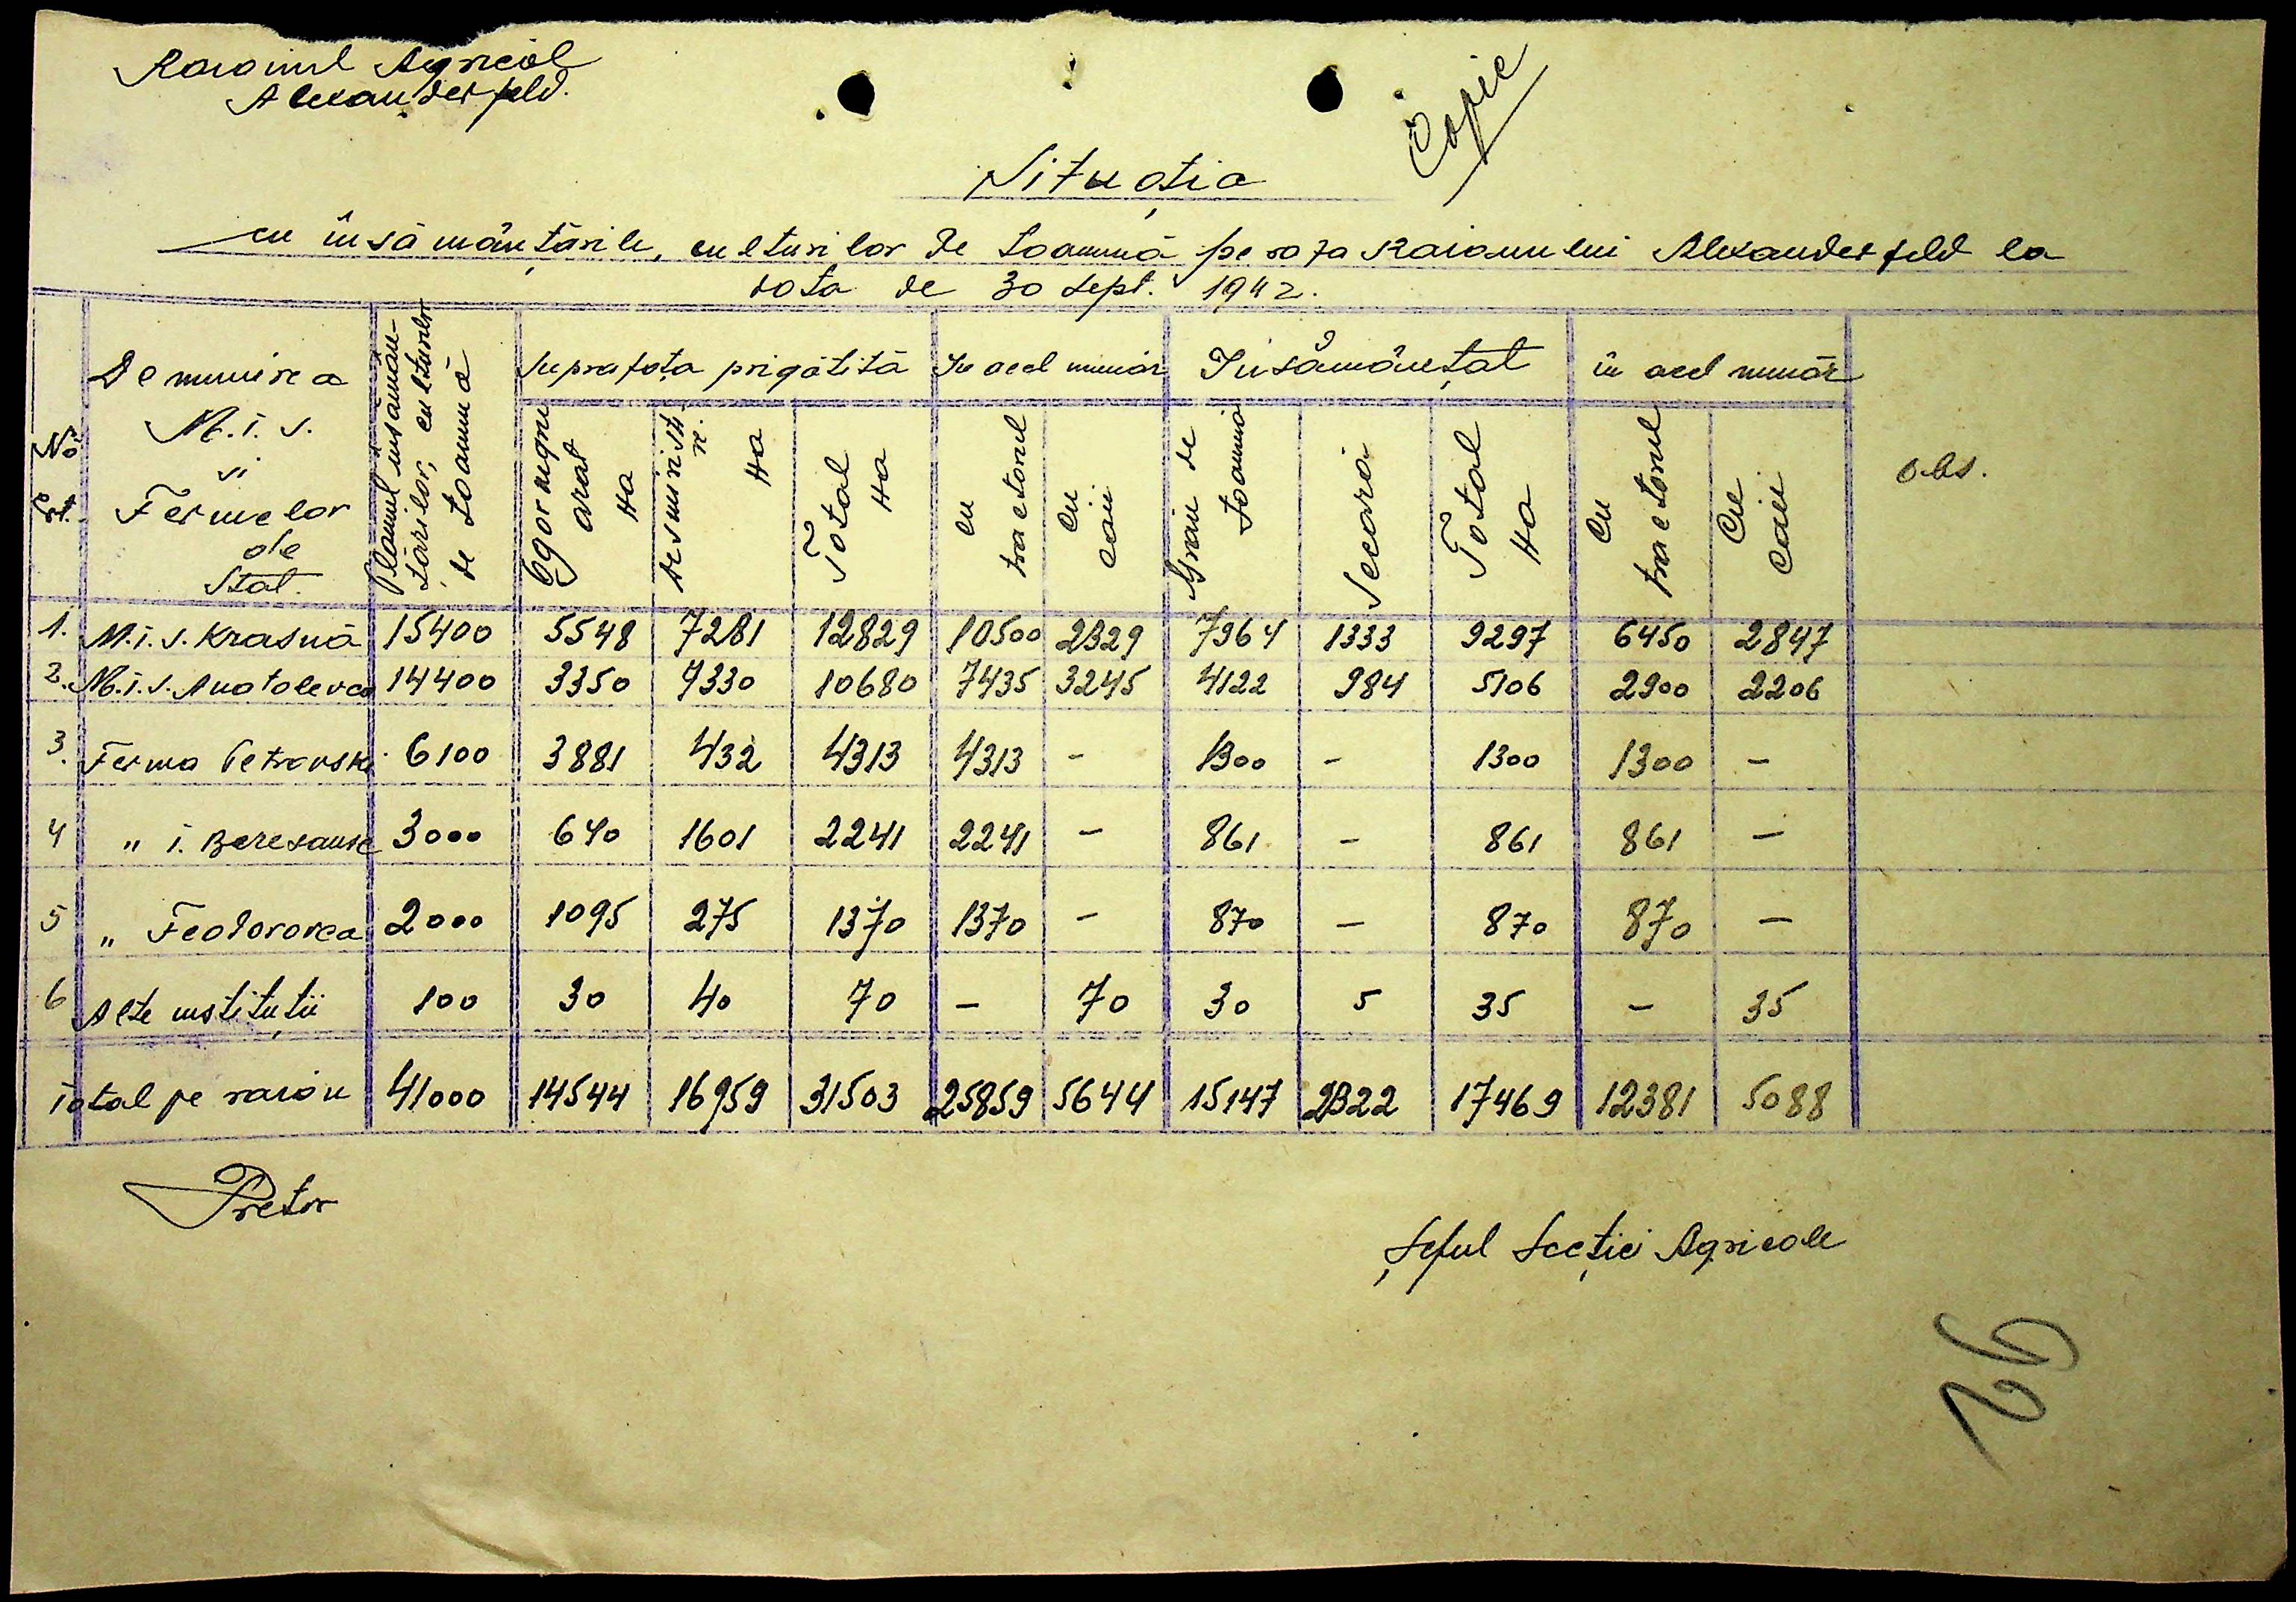 Raionul Agricol
Alexanderfeld.
Copie
Situația
cu însămânțările, culturilor de toamnă pe raza Raionului Alexanderfeld la
data de 30 Sept. 1942.
No Crt. | Denumirea M.T.S. si Fermelor de Stat. | Planul însămân-țărilor, culturilor de toamnă | Suprafața prigătită | In acel număr | Insămânețat | în acel număr | obs.
Ogor negru arat Ha | Desmiriștire. Ha | Total Ha | cu tractorul | cu caii | Grâu de toamnă | Secară | Total Ha | Cu tractorul | Cu Caii
1. M.T.S. Krasnă 15400 5548 7281 12829 10500 2329 7964 1333 9297 6450 2847
2. M.T.S. Anatolevca 14400 3350 7330 10680 7435 3245 4122 984 5106 2900 2206
3. Ferma Petrovski 6100 3881 432 4313 4313 - 1300 - 1300 1300 -
4 " i. Beresansc 3000 640 1601 2241 2241 - 861 - 861 861 -
5 " Feodorovca 2000 1095 275 1370 1370 - 870 - 870 870 -
6 Alte instituții 100 30 40 70 - 70 30 5 35 - 35
Total pe raion 41000 14544 16959 31503 25859 5644 15147 2322 17469 12381 5088
Pretor
Șeful Secției Agricole